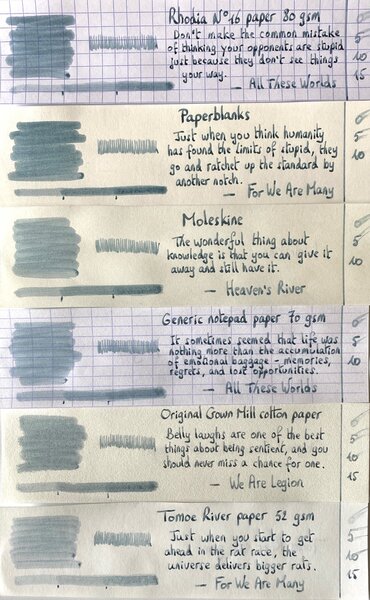 Rhodia N°16 paper 80 gsm
Don't make the common mistake
of thinking your opponents are stupid
just because they don't see things
your way.
— All These Worlds
5
10
15
Paperblanks
Just when you think humanity
has found the limits of stupid, they
go and ratchet up the standard by
another notch.
— For We Are Many
5
10
Moleskine
The wonderful thing about
knowledge is that you can give it
away and still have it.
— Heaven's River
5
10
Generic notepad paper 70 gsm
It sometimes seemed that life was
nothing more than the accumulation
of emotional baggage - memories,
regrets, and lost opportunities.
— All These Worlds
5
10
15
Original Crown Mill cotton paper
Belly laughs are one of the best
things about being sentient, and you
should never miss a chance for one.
— We Are Legion
5
10
15
Tomoe River paper 52 gsm
Just when you start to get
ahead in the rat race, the
universe delivers bigger rats.
— For We Are Many
5
10
15